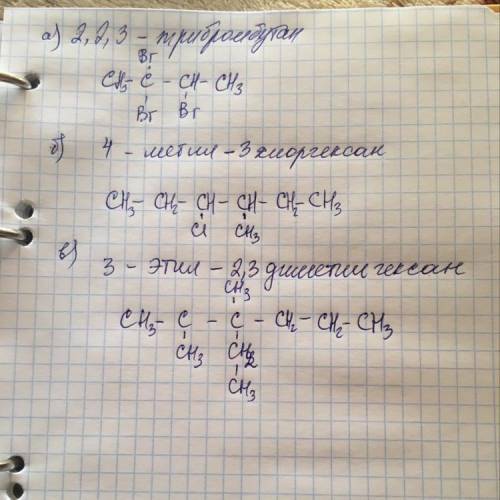 а) 2,2,3 - трибромбутан
Br
CH3 - C - CH - CH3
Br Br
б) 4 - метил - 3 хлоргексан
CH3 - CH2 - CH - CH - CH2 - CH3
Cl CH3
в) 3 - этил - 2,3 диметил гексан
CH3
CH3 - C - C - CH2 - CH2 - CH3
CH3 CH2
CH3